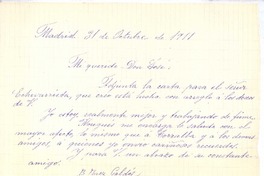 Madrid 21 de Octubre de 1911
Mi querido Don José:
Adjunta la carta para el señor
que creo está hecha con arreglo á los deseos
de V.
Yo estoy realmente mejor y trabajando de firme.
me encarga le salude con el
mayor afecto, lo mismo que á Torralba y á los demás
amigos, á quienes yo envío cariñosos recuerdos.
Y para V. un abrazo de su constante
amigo.
B. Pérez Galdós